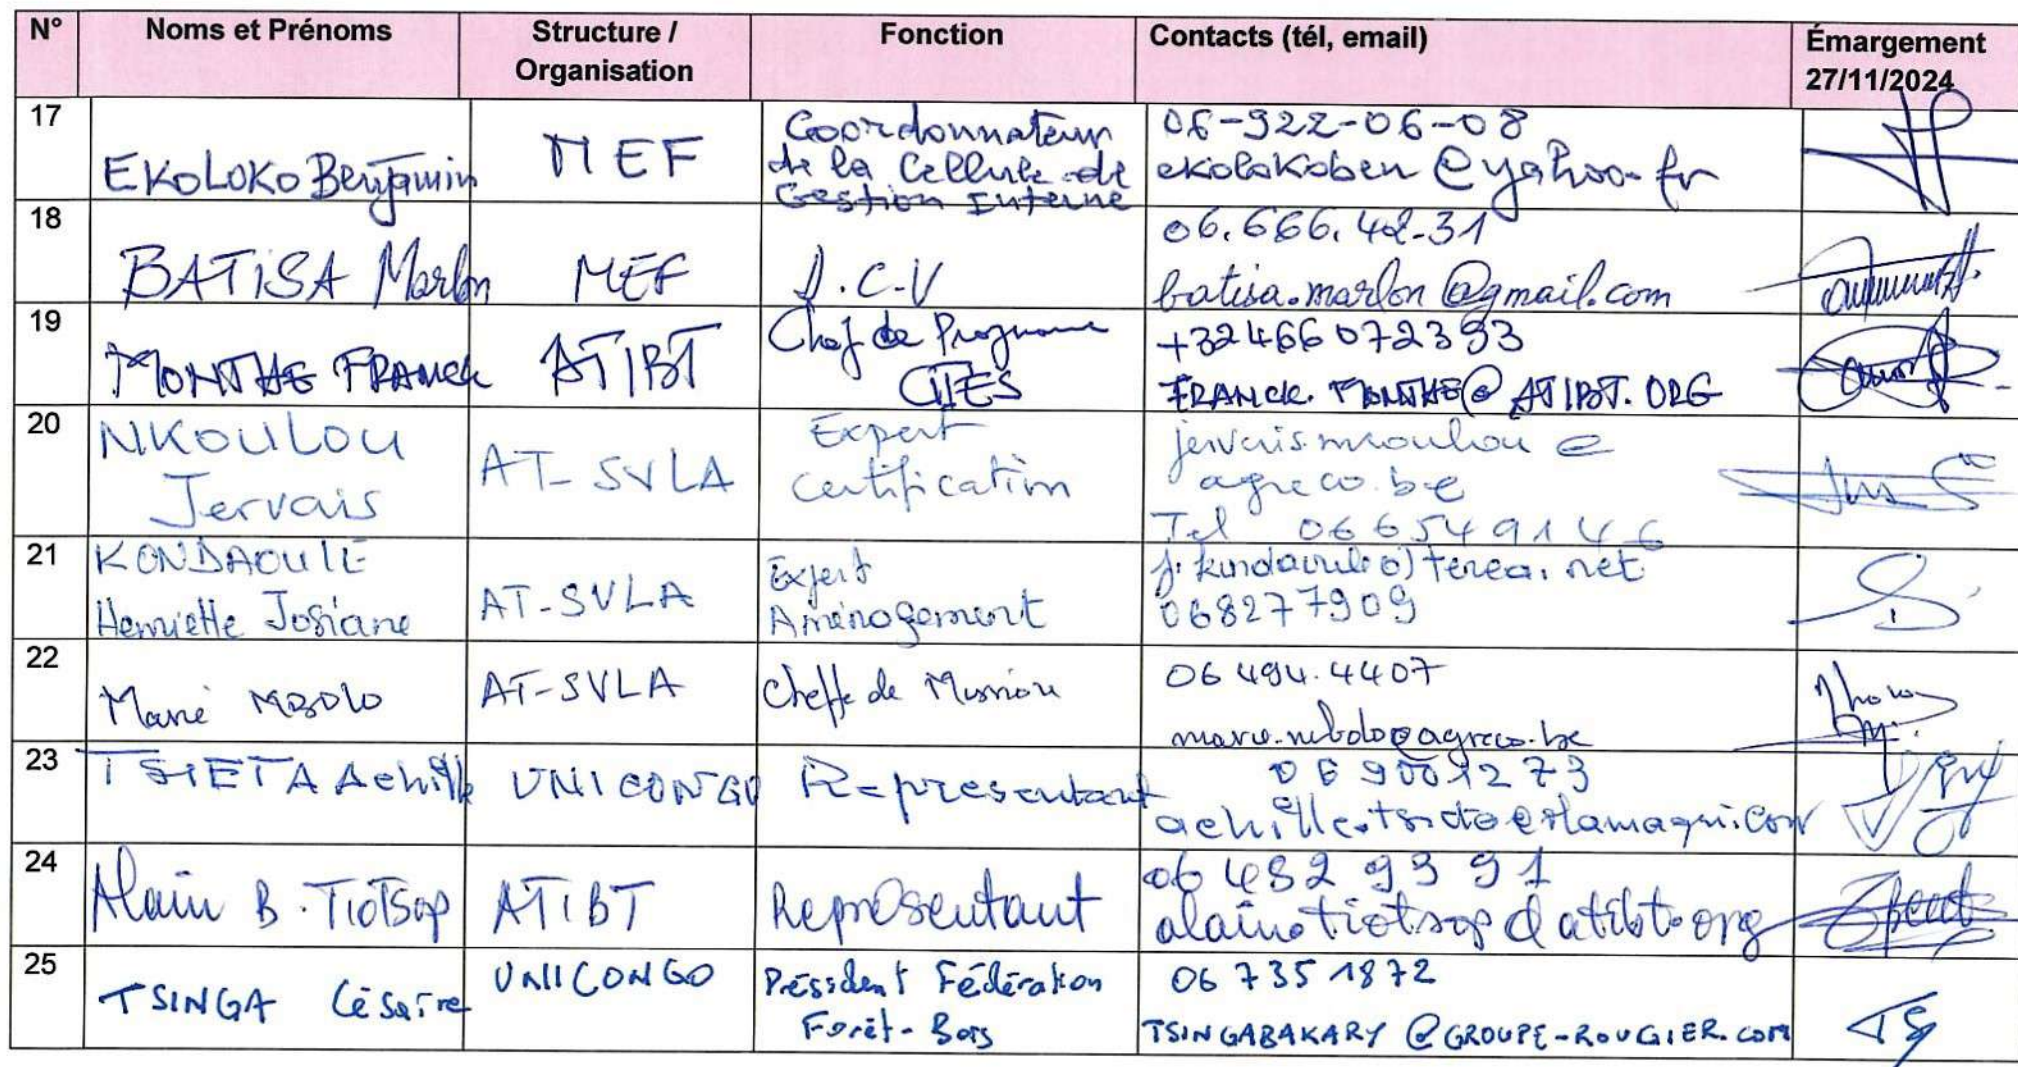 N° Noms et Prénoms Structure / Organisation Fonction Contacts (tél, email) Émargement 27/11/2024
17 EKOLOKO Benjamin MEF Coordonnateur de la Cellule de Gestion Interne 06-922-06-08
ekolokoben@yahoo.fr
18 BATISA Marlon MEF D.C.V 06.666.42.31
batisa.marlon@gmail.com
19 MONTHE FRANCK ATIBT Chef de Programme CITES +32466072393
FRANCK.MONTHE@ATIBT.ORG
20 NKOULOU Jervais AT-SVLA Expert certification
agreco.be
Tel 066549146
21 KONDAOULE Henriette Josiane AT-SVLA Expert Aménagement
068277909
22 Marie MBOLO AT-SVLA Cheffe de Mission 06 494.4407
marie.mbolo@agreco.be
23 TSIETA Achille UNICONGO Représentant 06 9001273
24 Alain B. TIOTSOP ATIBT Représentant 06 482 99 91
alain.tiotsop@atibt.org
25 TSINGA Césaire UNICONGO Président Fédération Forêt-Bois 06 735 1872
TSINGABAKARY@GROUPE-ROUGIER.COM